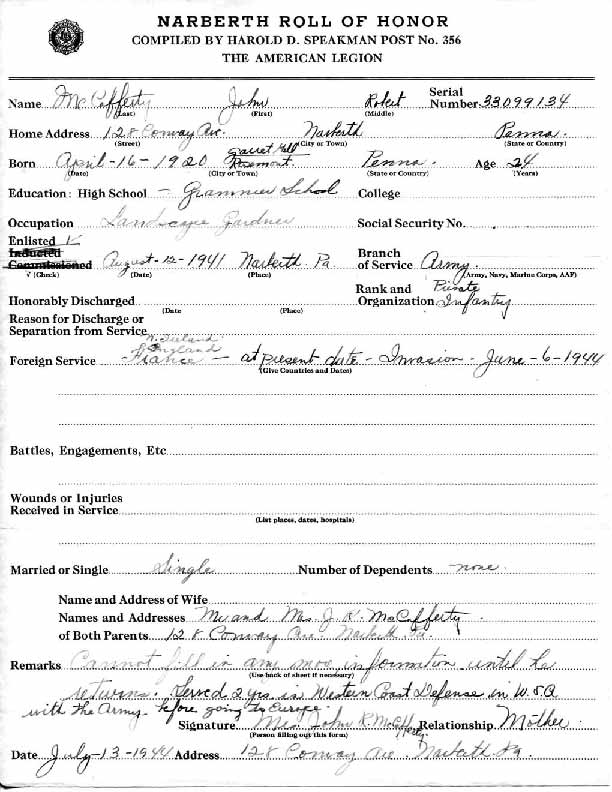 NARBERTH ROLL OF HONOR
COMPILED BY HAROLD D. SPEAKMAN POST No. 356
THE AMERICAN LEGION
Name McCafferty John Robert Serial Number 33099134
(Last) (First) (Middle)
Home Address 128 Conway Ave. Narberth Penna.
(Street) (City or Town) (State or Country)
Garret Hill
Born April-16-1920 Rosemont. Penna. Age 24
(Date) (City or Town) (State or Country) (Years)
Education: High School - Grammer School College
Occupation Landscape Gardner Social Security No.
Enlisted √
Inducted
Commissioned August-12-1941 Narberth Pa Branch of Service Army
√ (Check) (Date) (Place) (Army, Navy, Marine Corps, AAF)
Honorably Discharged Rank and Organization Private Infantry
(Date (Place)
Reason for Discharge or
Separation from Service
N. Ireland
England
Foreign Service -France - at present date - Invasion - June-6-1944
(Give Countries and Dates)
Battles, Engagements, Etc
Wounds or Injuries
Received in Service
(List places, dates, hospitals)
Married or Single Single Number of Dependents none
Name and Address of Wife
Names and Addresses Mr and Mrs J. R. McCafferty
of Both Parents 128 Conway Ave Narberth Pa.
Remarks Cannot fill in any moe information until he
(Use back of sheet if necessary)
returns. Served 2 yrs in Western Coast Defense in U.S.A
with the Army before going to Europe.
Signature Mrs. John R. McCafferty Relationship Mother
(Person filling out this form)
Date July-13-1944 Address 128 Conway Ave Narberth Pa.